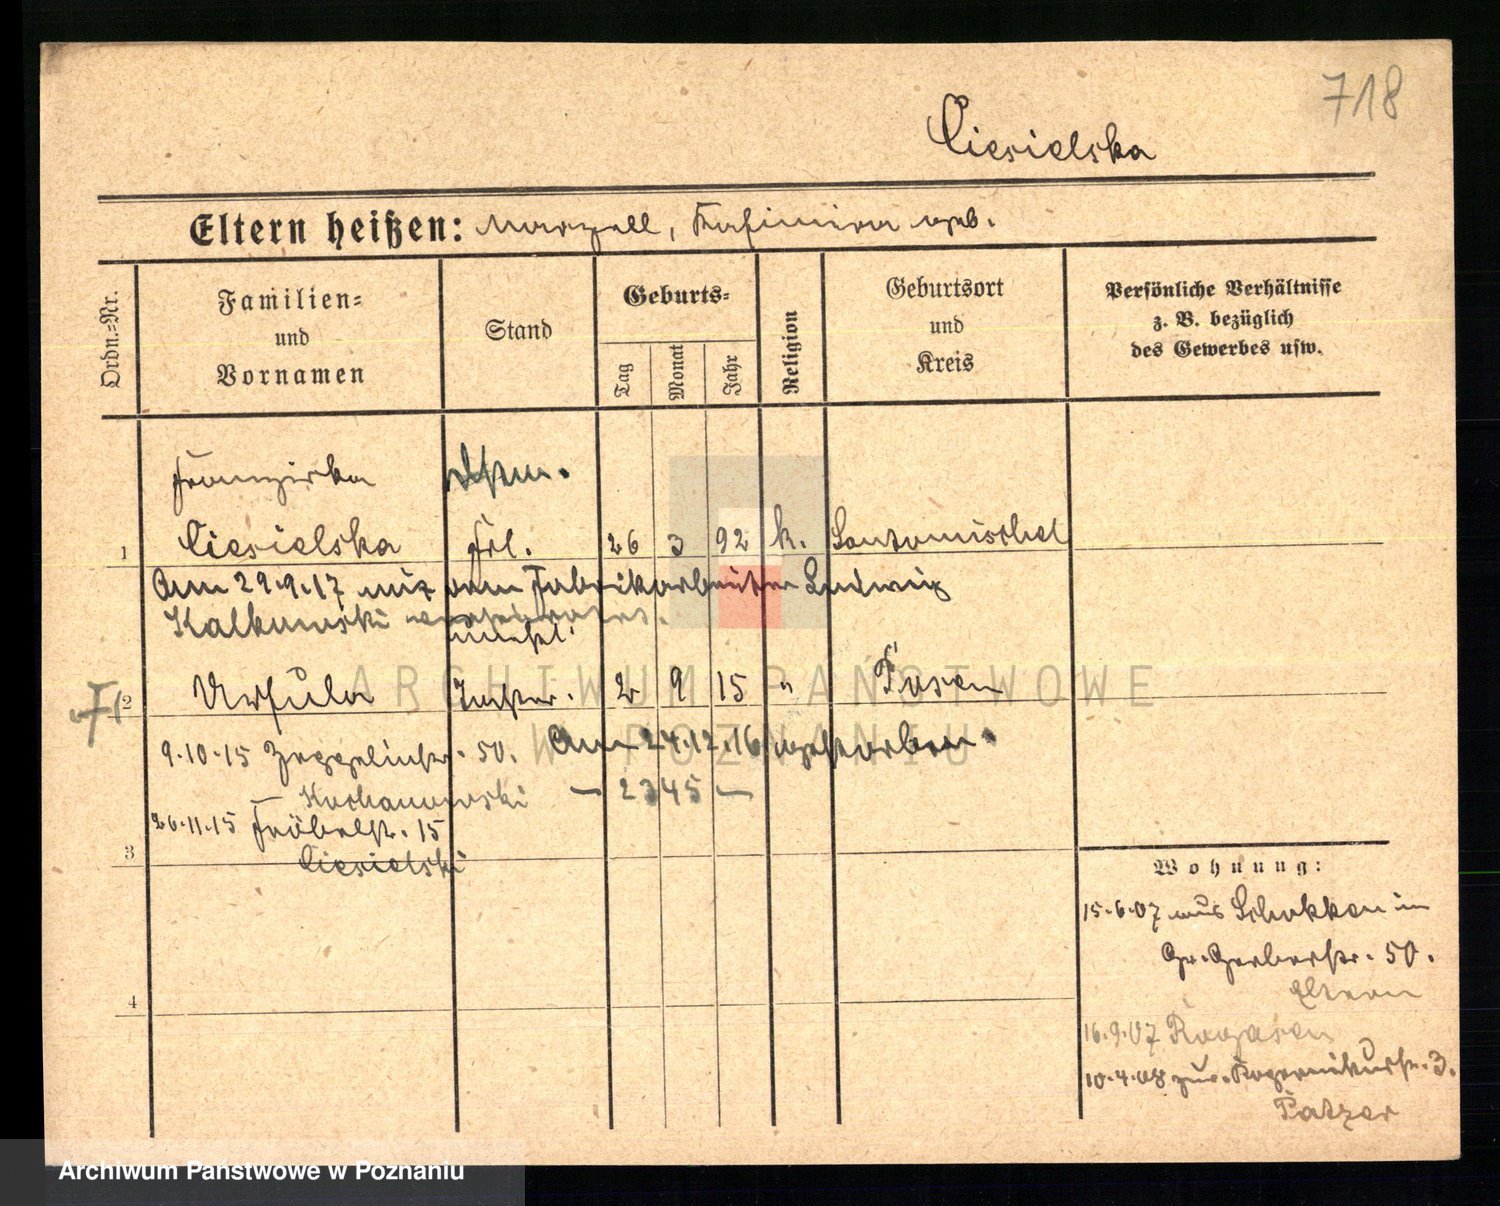 718
Ciesielska
Eltern heißen: Marzell, Kasimira geb.
Ordn.=Nr.
Familien=
und
Vornamen
Stand
Geburts=
Tag
Monat
Jahr
Religion
Geburtsort
und
Kreis
Persönliche Verhältnisse
z. B. bezüglich
des Gewerbes usw.
Franziska
1 Ciesielska Frl. 26 3 92 k. Santomischel
Am 29.9.17 mit dem Fabrikarbeiter Ludwig
Kalkowski verheiratet.
unehel.
2 Ursula Tochter. 2 9 15 " Posen
9.10.15 Zeppelinstr. 50. Am 24.12.16 gestorben.
Kochanowski — 2345 —
26.11.15 Fröbelstr. 15
3 Ciesielski
4
Wohnung:
15.6.07 aus Schokken in
Gr. Gerberstr. 50.
Eltern
16.9.07 Rogasen
10.4.08 zur. Kopernikusstr. 3.
Patzer
ARCHIWUM PAŃSTWOWE
W POZNANIU
Archiwum Państwowe w Poznaniu